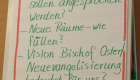 sollen angesproche
werden?
- Neue Räume - wie
füllen?
- Vision Bischof Osterf
Neuevangelisierung